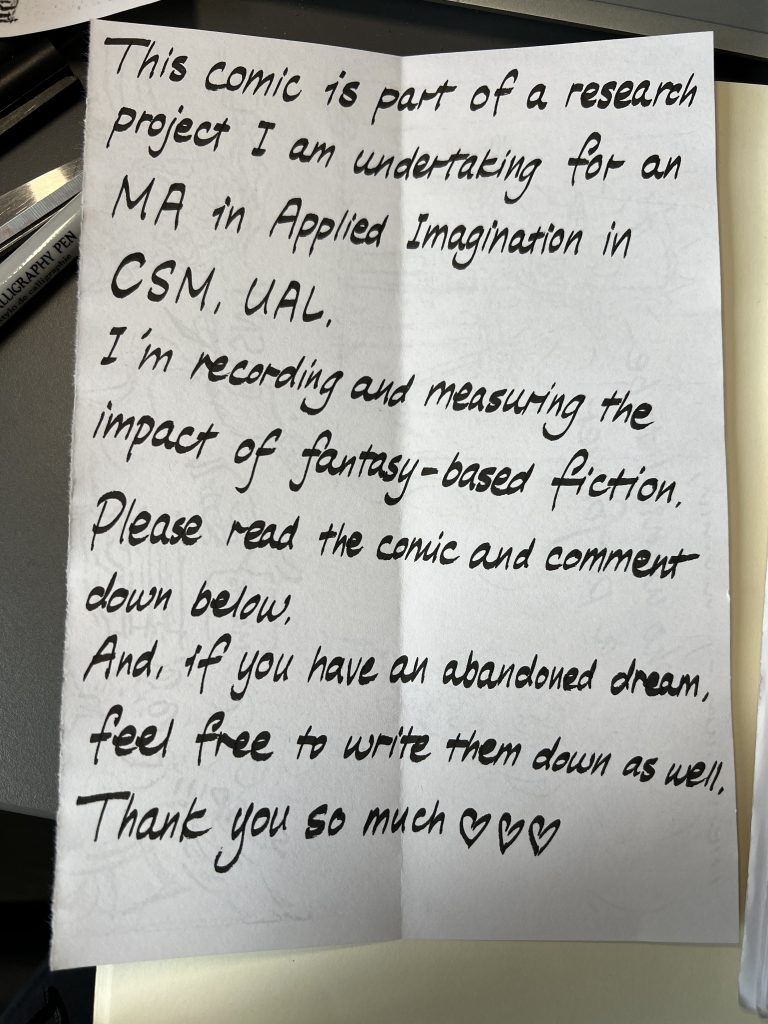 This comic is part of a research
project I am undertaking for an
MA in Applied Imagination in
CSM, UAL.
I'm recording and measuring the
impact of fantasy-based fiction.
Please read the comic and comment
down below.
And, if you have an abandoned dream,
feel free to write them down as well.
Thank you so much ♡♡♡
CALLIGRAPHY PEN
stylo de calligraphie